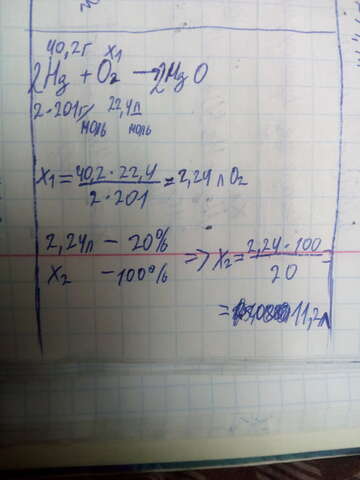 40,2г x₁
2Hg + O₂ → 2HgO
2·201г/моль 22,4л/моль
x₁ = 40,2·22,4 / 2·201 = 2,24л O₂
2,24л – 20%
x₂ – 100%
=> x₂ = 2,24·100 / 20 =
= 11,2л